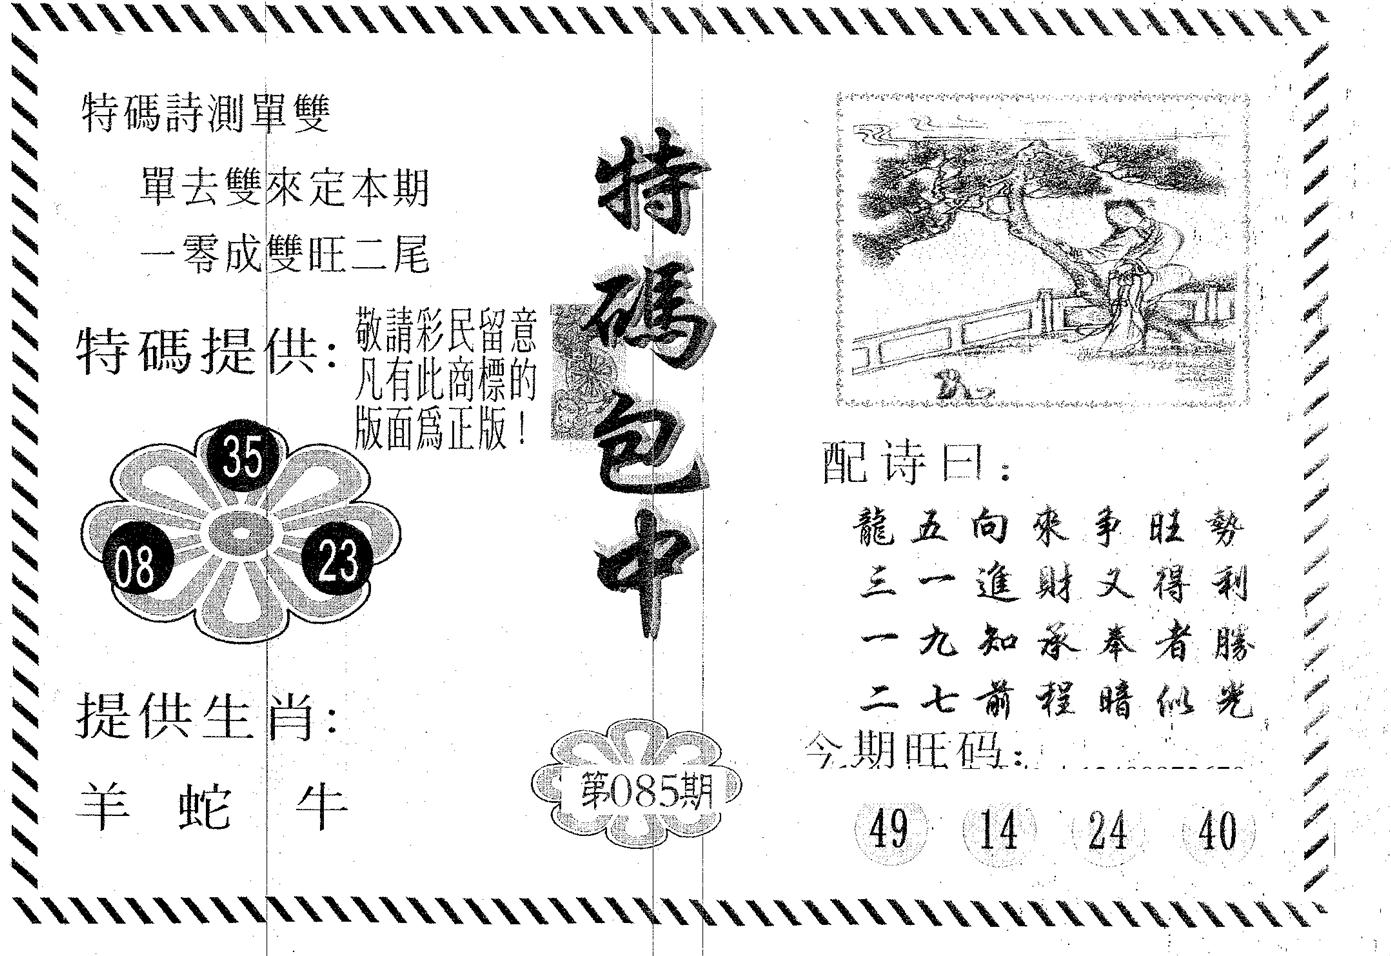 特碼詩測單雙
單去雙來定本期
一零成雙旺二尾
特碼提供:
敬請彩民留意
凡有此商標的
版面爲正版！
35
08
23
提供生肖:
羊 蛇 牛
特碼包中
第085期
配诗曰：
龍五向來争旺勢
三一進財又得利
一九知承奉者勝
二七前程暗似光
今期旺码:
49 14 24 40